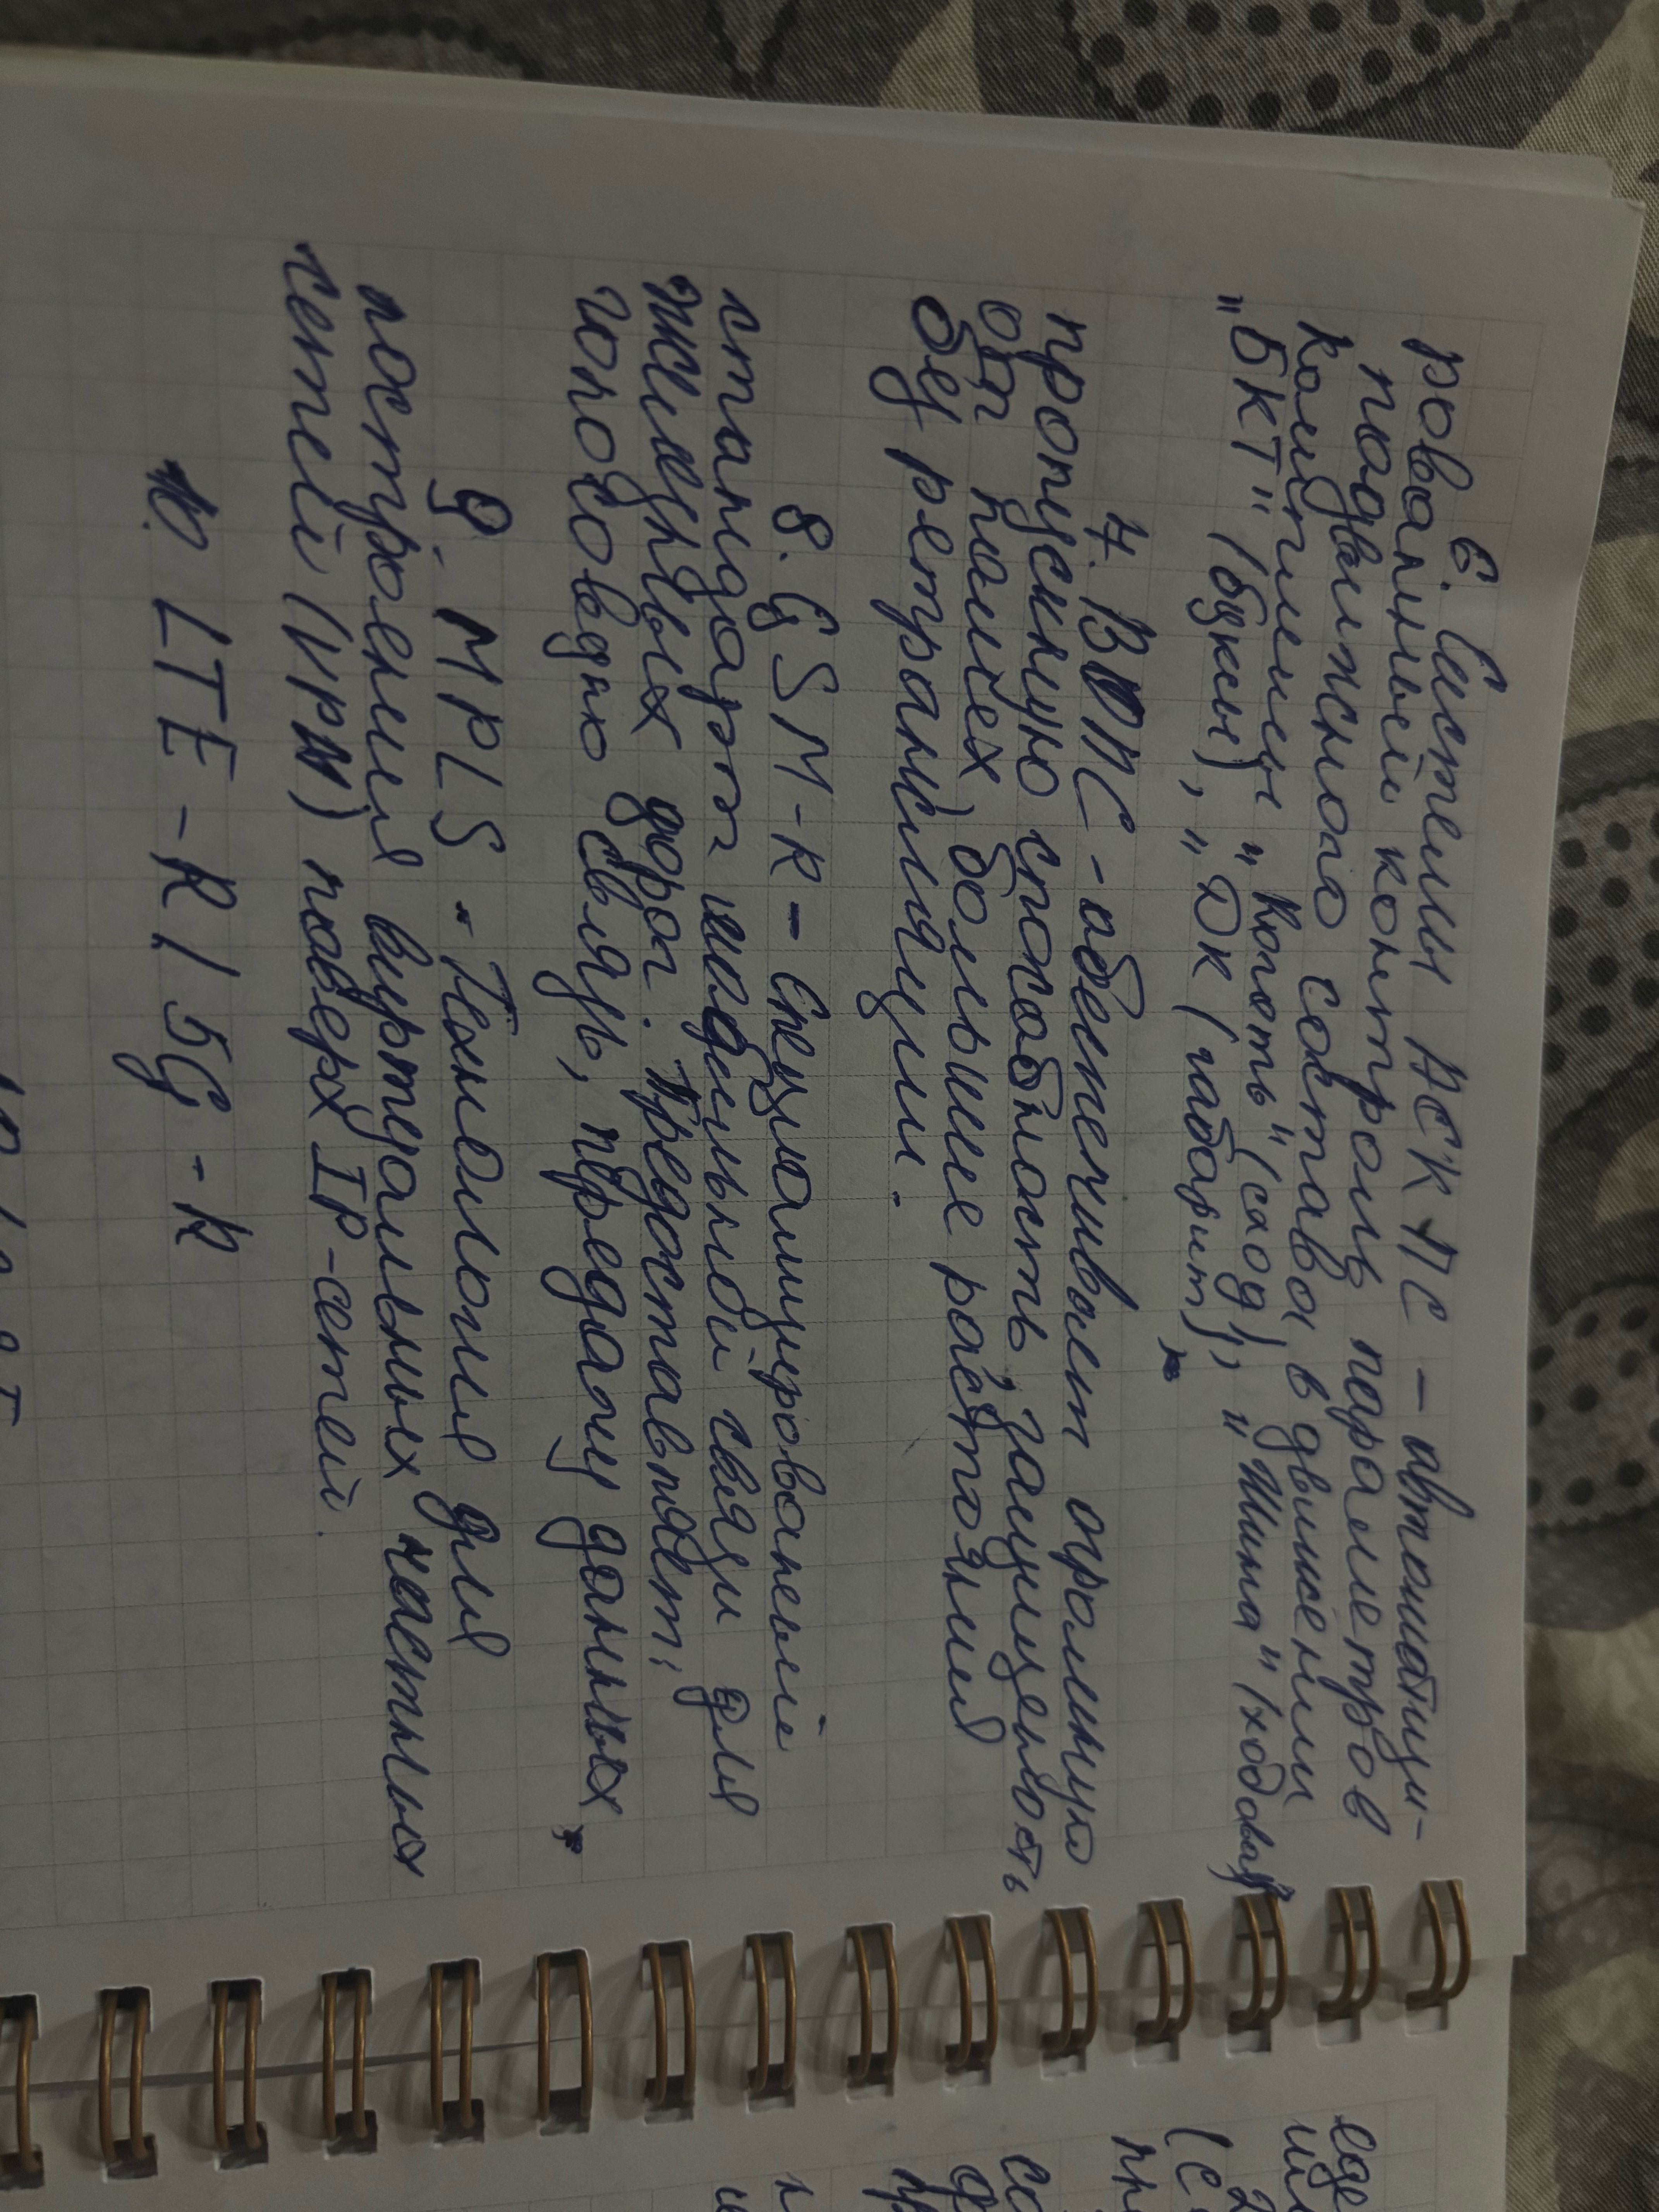 6. Системы АСК ПС – автоматизи-
рованный контроль параметров
подвижного состава в движении
Комплексы „Коготь" (сход), „Шина" (ходовая)
„БКТ" (буксы), „ДК (габарит),
7. ВОЛС - обеспечивает огромную
пропускную способность, защищенность
от помех, большие расстояния
без ретрансляции.
8. GSM-R – Специализированный
стандарт мобильной связи для
железных дорог. Предоставляет:
голосовую связь, передачу данных,
9. MPLS - Технология для
построения виртуальных частных
сетей (VPN) поверх IP-сетей.
10 LTE-R / 5G-R